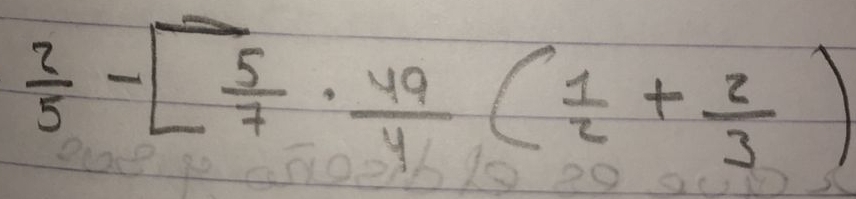 2/5 - [ 5/7 · 49/4 ( 1/2 + 2/3 )